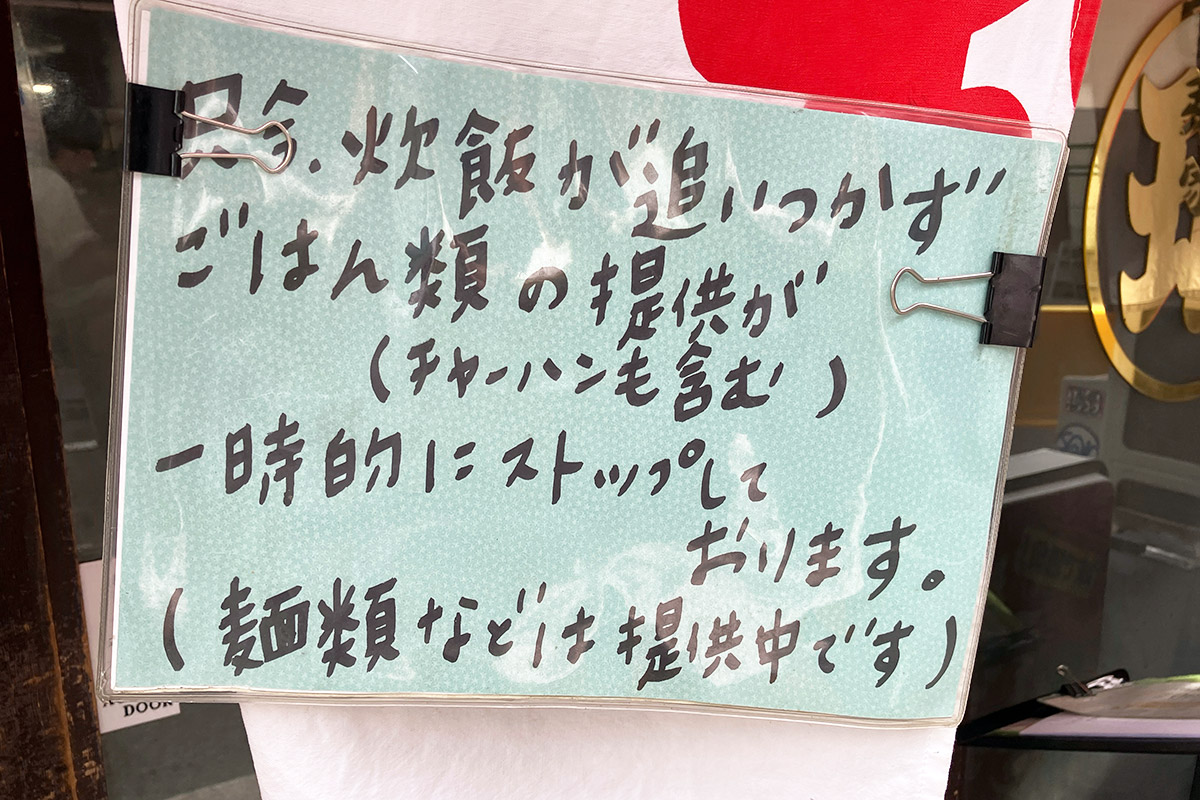 只今、炊飯が追いつかず
ごはん類の提供が
(チャーハンも含む)
一時的にストップして
おります。
(麺類などは提供中です)
DOOR